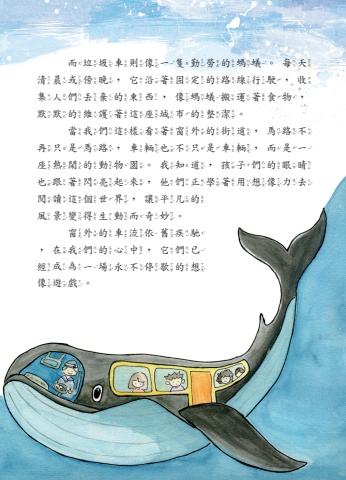 而垃圾車則像一隻勤勞的螞蟻。每天
清晨或傍晚，它沿著固定的路線行駛，收
集人們丟棄的東西，像螞蟻搬運著食物，
默默的維護著這座城市的整潔。
當我們這樣看著窗外的街道，馬路不
再只是馬路，車輛也不只是車輛，而是一
座熱鬧的動物園。我知道，孩子們的眼睛
也跟著閃亮起來，他們正學著用想像力去
閱讀這個世界，讓平凡的
風景變得生動而奇妙。
窗外的車流依舊疾馳
，在我們的心中，它們已
經成為一場永不停歇的想
像遊戲。